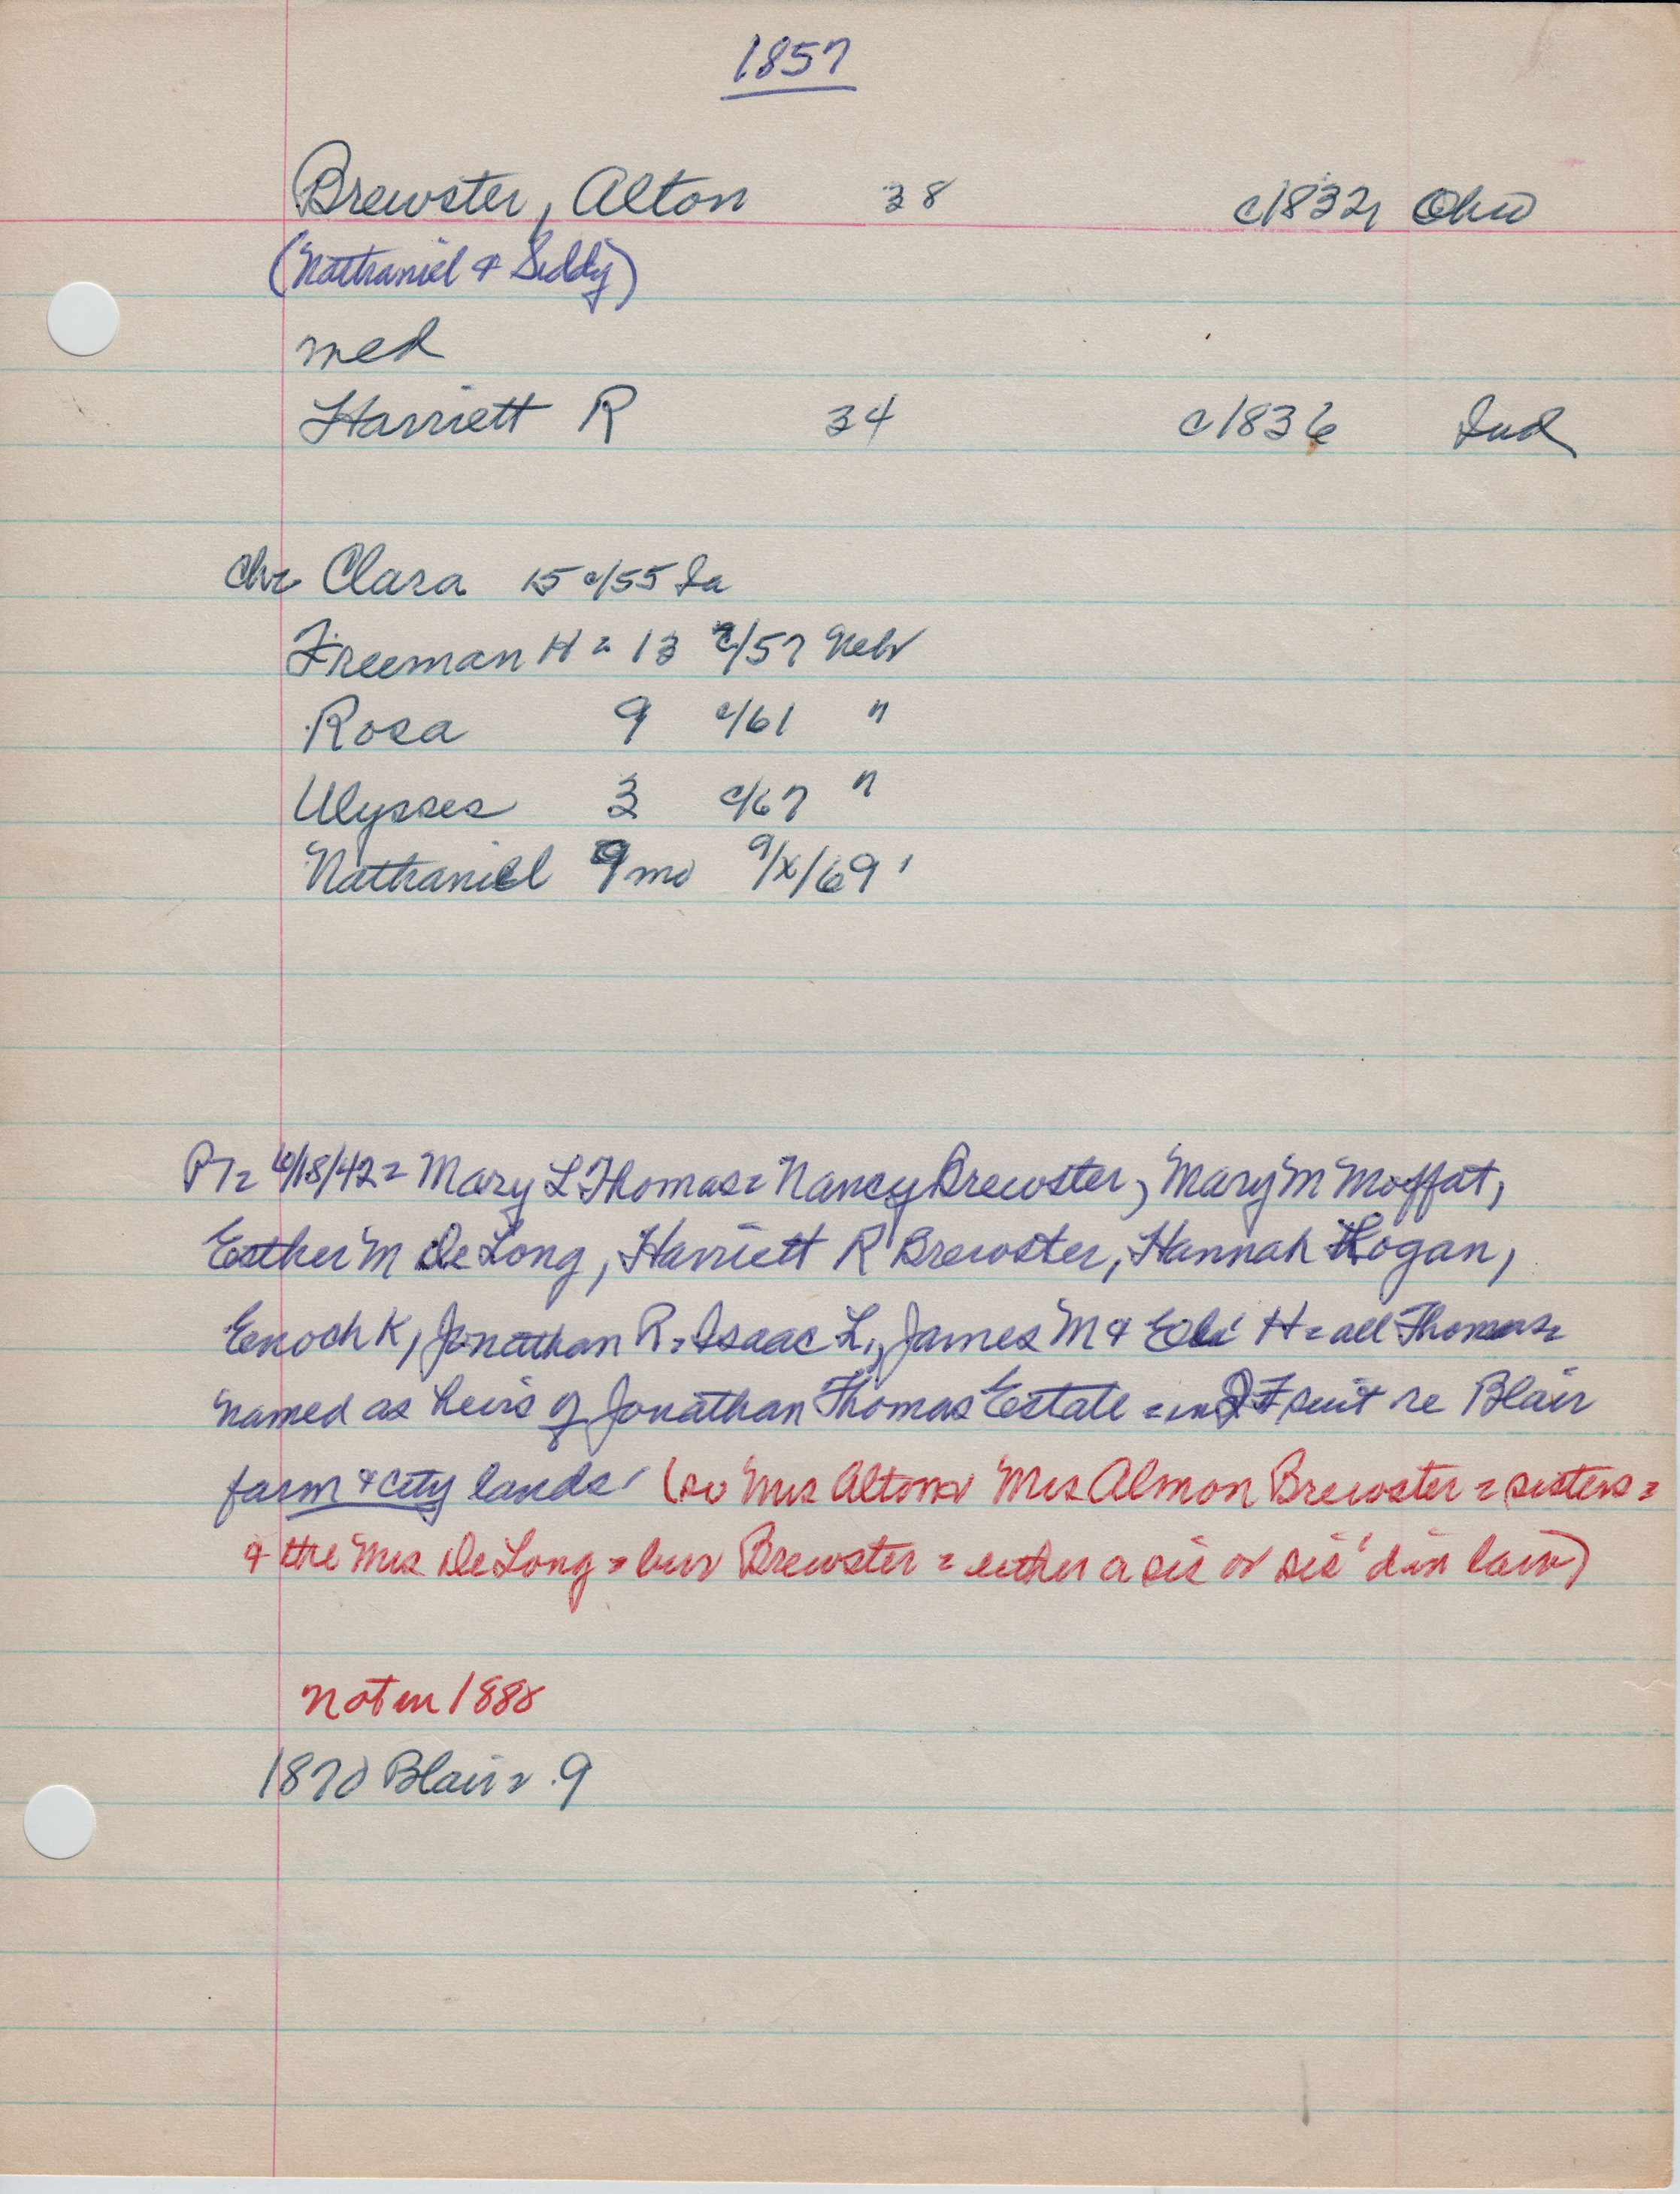 1857
Brewster, Alton 38 c1832, Ohio
(Nathaniel & Siddy)
med
Harriett R 34 c1836 Ind
Ch= Clara 15 c/55 Ia
Freeman H = 13 c/57 Nebr
Rosa 9 c/61 "
Ulysses 3 c/67 "
Nathaniel 9 mo 9/x/69 '
PT= 6/18/42= Mary L Thomas= Nancy Brewster, Mary M Moffat,
Esther M DeLong, Harriett R Brewster, Hannah Hogan,
Enoch K, Jonathan R, Isaac L, James M & Eli H= all Thomas=
named as heirs of Jonathan Thomas Estate = in QT suit re Blair
farm & city lands' (so Mrs Alton & Mrs Almon Brewster = sisters =
& the Mrs DeLong = bur Brewster = either a sis or sis' d in law)
not in 1888
1870 Blair = 9